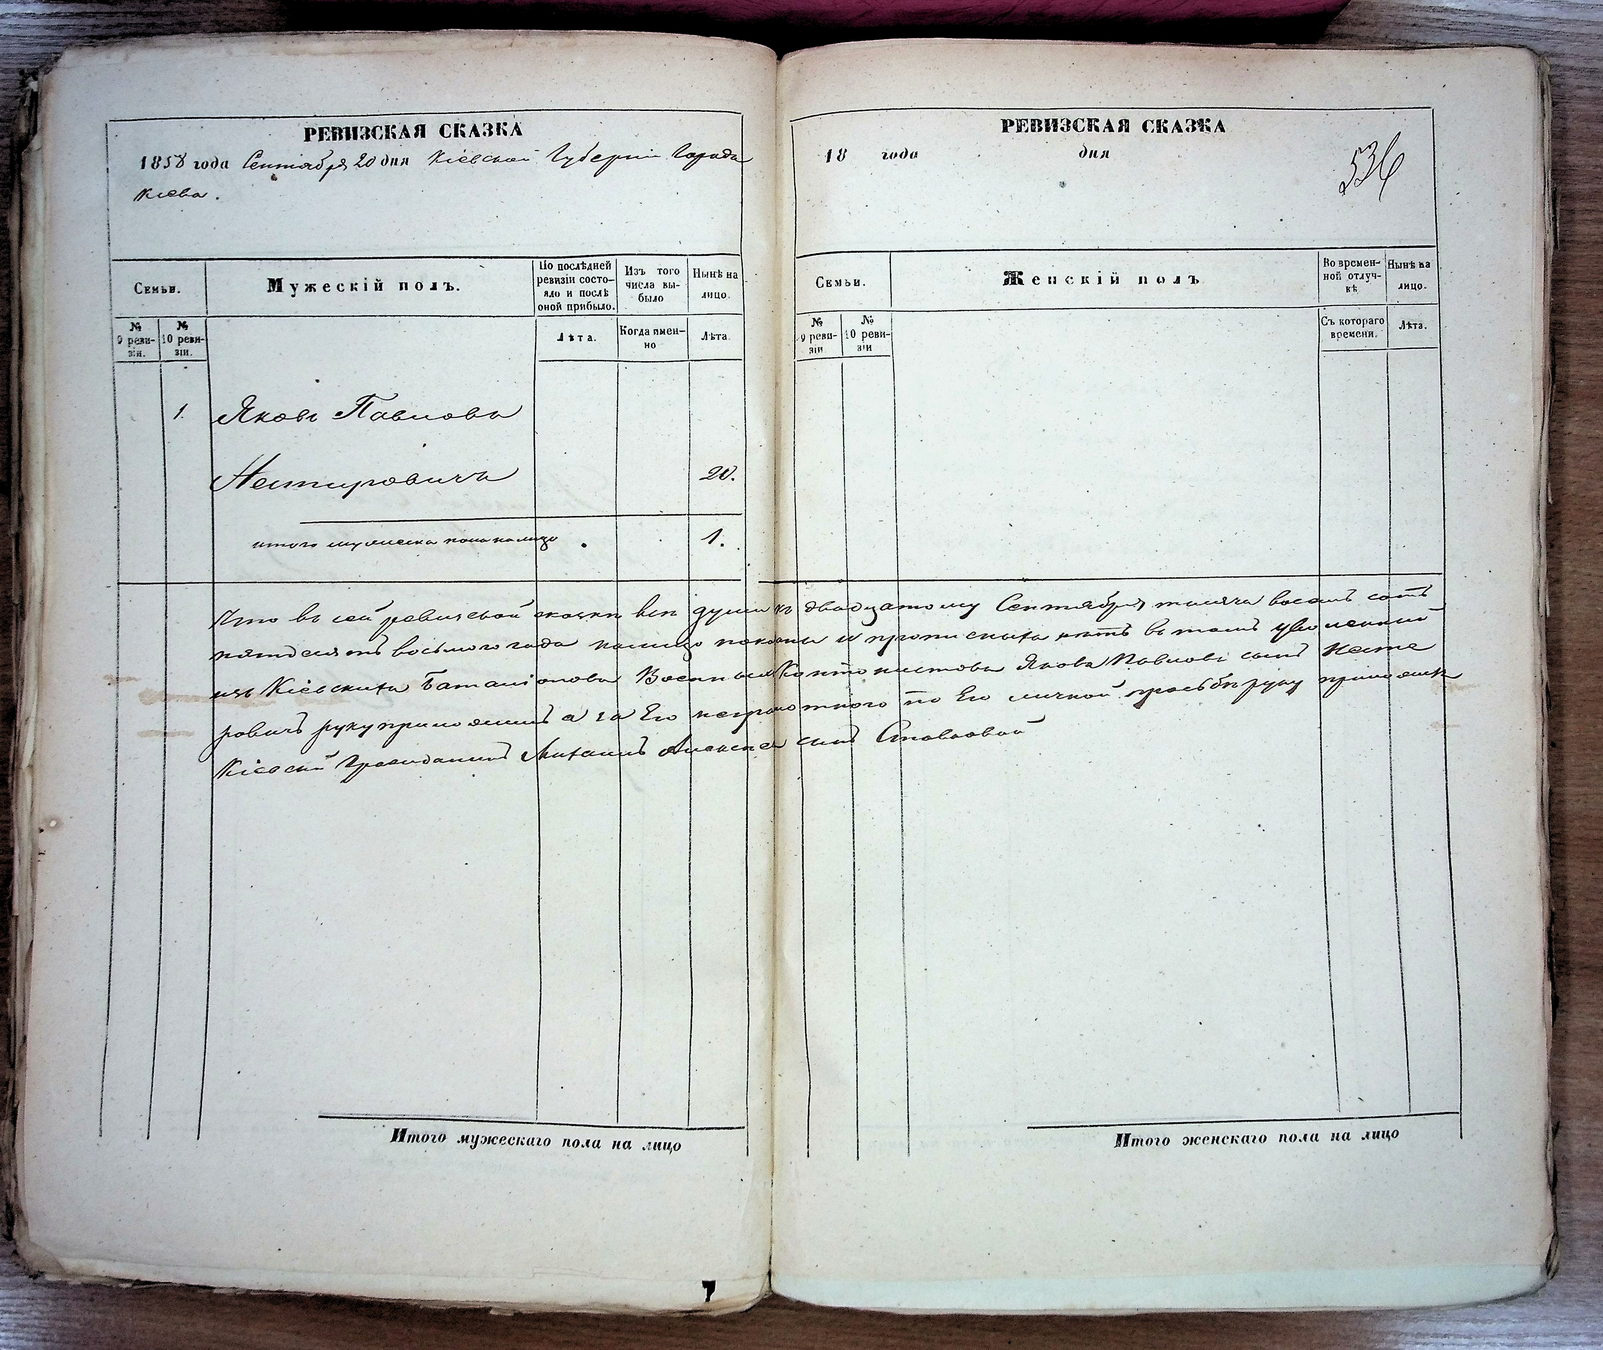 РЕВИЗСКАЯ СКАЗКА
1858 года Сентября 20 дня Кіевской Губерніи Города
Кіева.
Семьи.
Мужескій полъ.
По послѣдней ревизіи состояло и послѣ оной прибыло.
Изъ того числа выбыло
Нынѣ на лицо.
№ 9 ревизіи.
№ 10 ревизіи.
Лѣта.
Когда именно
Лѣта.
1. Яковъ Павловъ
Нестеровичъ 20.
итого мужеска пола налицо 1.
РЕВИЗСКАЯ СКАЗКА
18 года дня
536
Семьи.
Женскій полъ
Во временной отлучкѣ
Нынѣ на лицо.
№ 9 ревизіи
№ 10 ревизіи
Съ котораго времени.
Лѣта.
Что въ сей ревизской сказки всѣ души къ двадцатому Сентября тысяча восемь сотъ
пятдесятъ восьмого года налицо показаны и прописныхъ нѣтъ въ томъ уволенный
изъ Кіевскихъ Баталіоновъ Военныхъ Кантонистовъ Яковъ Павловъ сынъ Несте
ровичъ руку приложилъ а за Его неграмотного по Его личной прозьбѣ руку приложилъ
Кіевскій Гражданинъ Михаилъ сынъ
Итого мужескаго пола на лицо
Итого женскаго пола на лицо